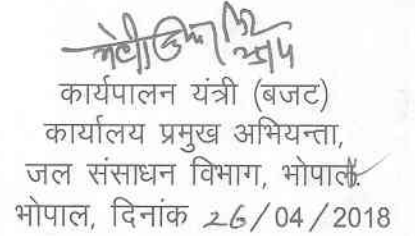 कार्यपालन यंत्री (बजट)
कार्यालय प्रमुख अभियन्ता,
जल संसाधन विभाग, भोपाल
भोपाल, दिनांक 26/04/2018